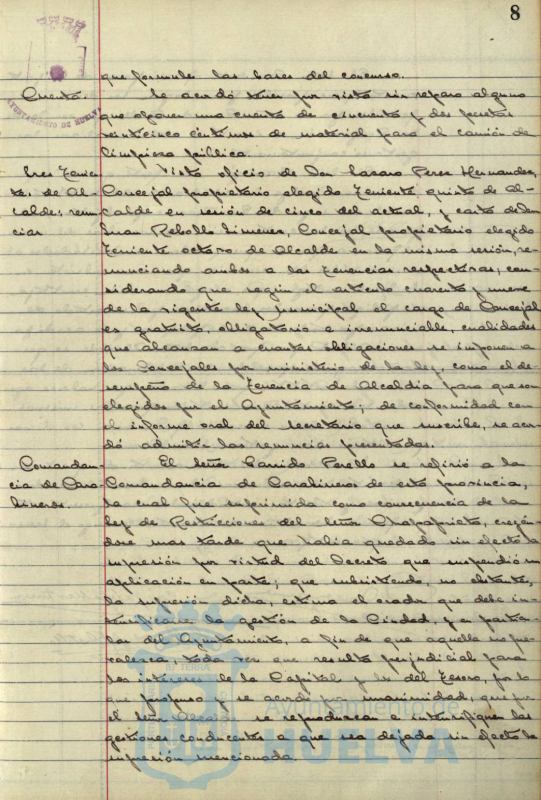 8
AYUNTAMIENTO DE HUELVA
que formule las bases del concurso.
Cuenta.
Se acordó tener por visto sin reparo alguno
que oponer una cuenta de cincuenta y dos pesetas
veinticinco céntimos de material para el camión de
limpieza pública.
Tres Tenien-
tes de Al-
calde: renun-
cias
Visto oficio de Don Lázaro Perez Hernandez,
Concejal propietario elegido Teniente quinto de Al-
calde en sesión de cinco del actual, y carta de Don
Juan Rebollo Jimenez, Concejal propietario elegido
Teniente octavo de Alcalde en la misma sesión, re-
nunciando ambos a las Tenencias respectivas; con-
siderando que según el artículo cuarenta y nueve
de la vigente ley municipal el cargo de Concejal
es gratuito, obligatorio e irrenunciable, cualidades
que alcanzan a cuantas obligaciones se imponen a
los Concejales por ministerio de la ley, como el de-
sempeño de la Tenencia de Alcaldía para que son
elegidos por el Ayuntamiento; de conformidad con
el informe oral del Secretario que suscribe, se acor-
dó admitir las renuncias presentadas.
Comandan-
cia de Cara-
bineros.
El Señor Garrido Perello se refirió a la
Comandancia de Carabineros de esta provincia,
la cual fue suprimida como consecuencia de la
ley de Restricciones del Señor Chapaprieta, creyén-
dose mas tarde que había quedado sin efecto la
supresión por virtud del Decreto que suspendió su
aplicación en parte; que subsistiendo, no obstante,
la supresión dicha, estima el orador que debe in-
tensificarse la gestión de la Ciudad, y en particu-
lar del Ayuntamiento, a fin de que aquella no pre-
valezca, toda vez que resulta perjudicial para
los intereses de la Capital y los del Tesoro, por lo
que propuso y se acordó por unanimidad, que por
el Señor Alcalde se reproduzcan e intensifiquen las
gestiones conducentes a que sea dejada sin efecto la
supresión mencionada.
Ayuntamiento de
HUELVA